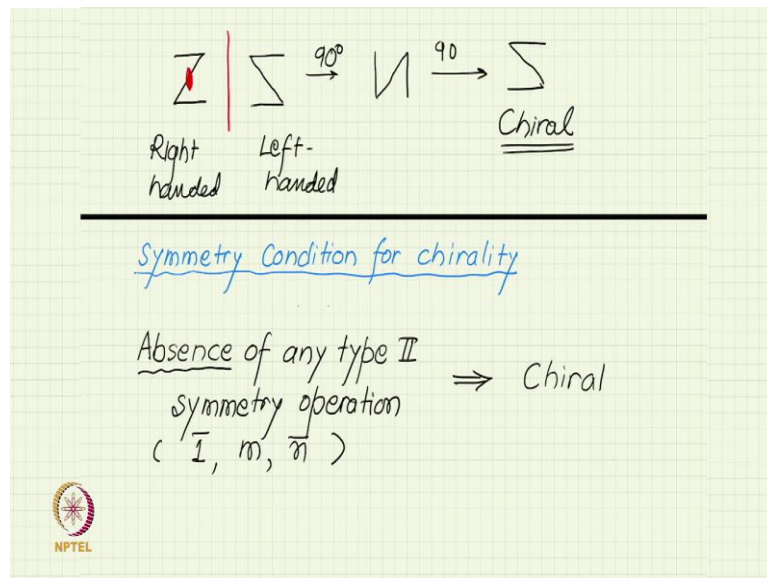 Z | Σ 90° → И 90 → Σ
Chiral
Right handed
Left-handed
Symmetry Condition for chirality
Absence of any type II
symmetry operation
( 1̅, m, n̅ )
⇒ Chiral
NPTEL